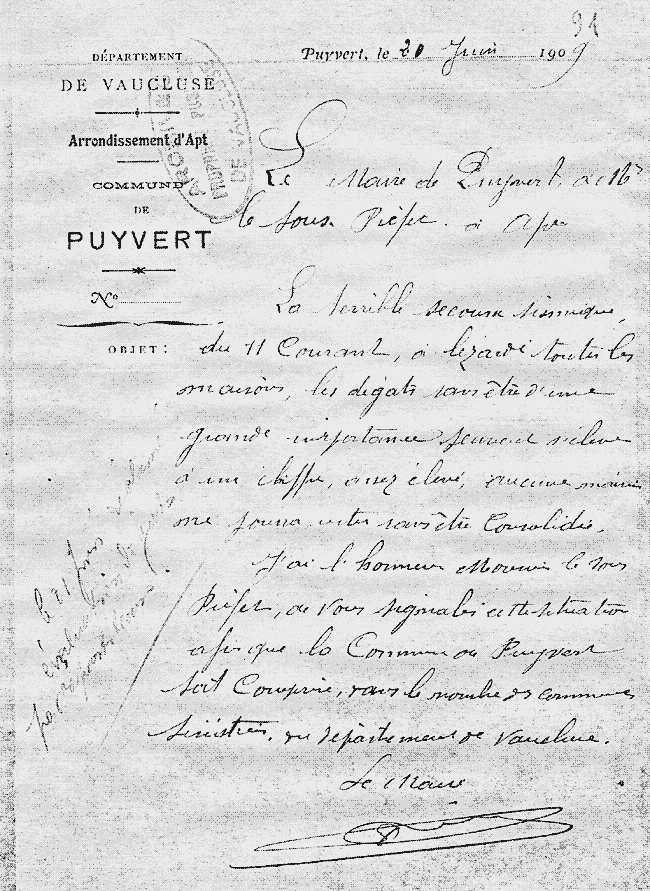 91
DÉPARTEMENT
DE VAUCLUSE
Arrondissement d'Apt
COMMUNE
DE
PUYVERT
N°
OBJET :
Puyvert, le 20 Juin 1909
Le Maire de Puyvert, à Mr
le Sous Préfet à Apt
La terrible secousse sismique,
du 11 Courant, à lezardé toutes les
maisons, les dégats sans être d'une
grande importance peuvent s'élever
à un chiffre, assez élevé, aucune maison
ne pourra rester sans être Consolidée.
J'ai l'honneur Monsieur le Sous
Préfet, de vous signaler cette situation
afin que la Commune de Puyvert
soit Comprise, dans le nombre des communes
sinistrées, du département de Vaucluse.
Le Maire